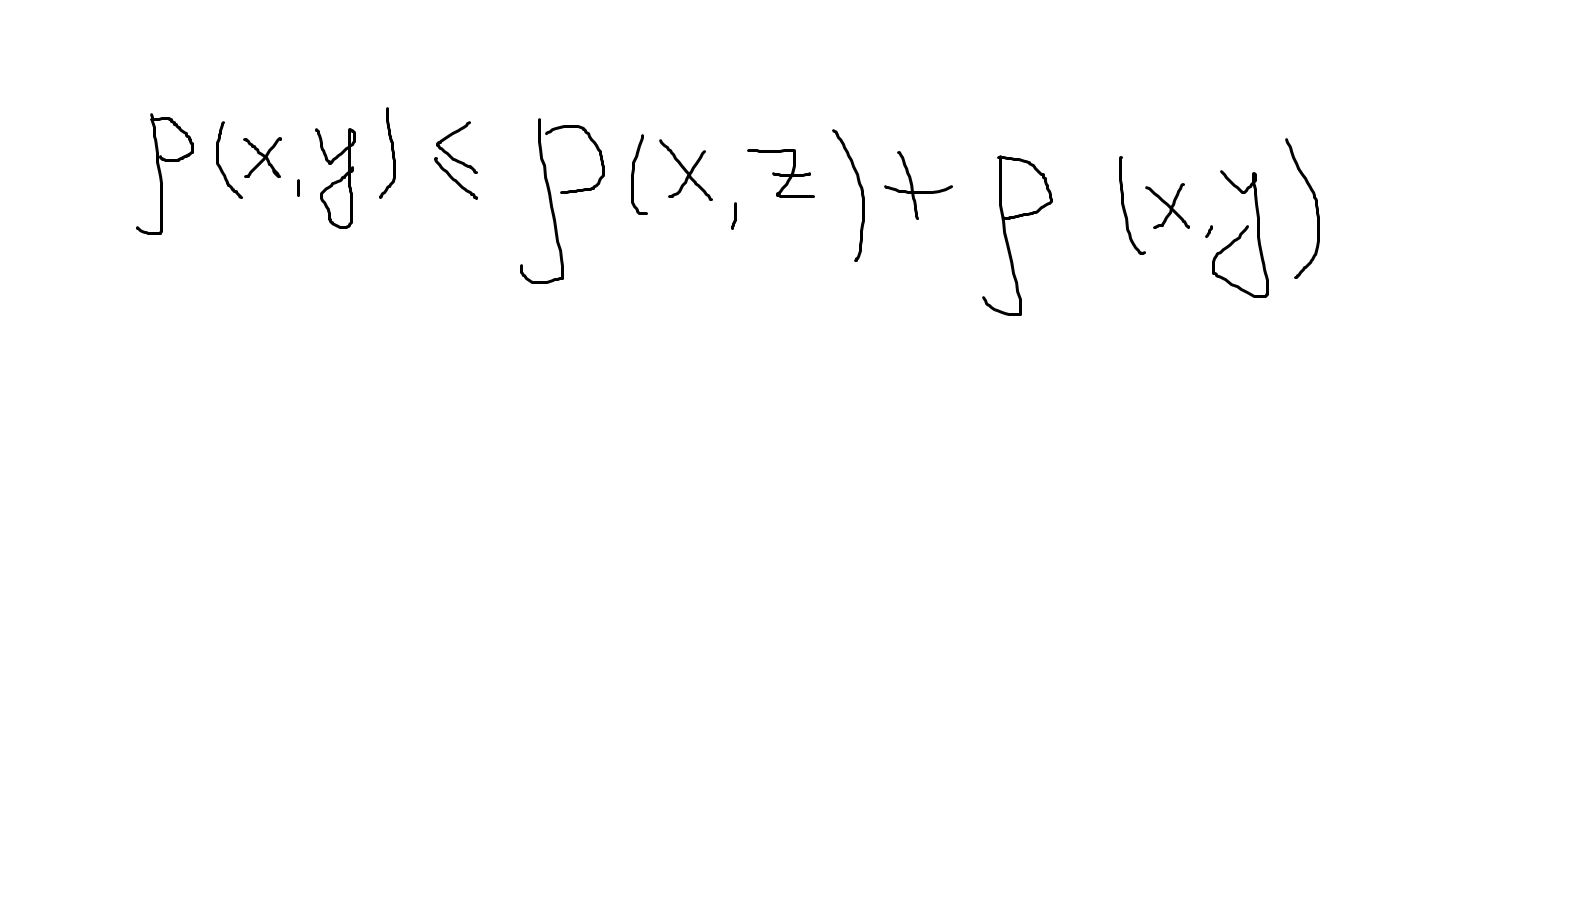 ρ(x,y) ≤ ρ(x,z) + ρ(x,y)